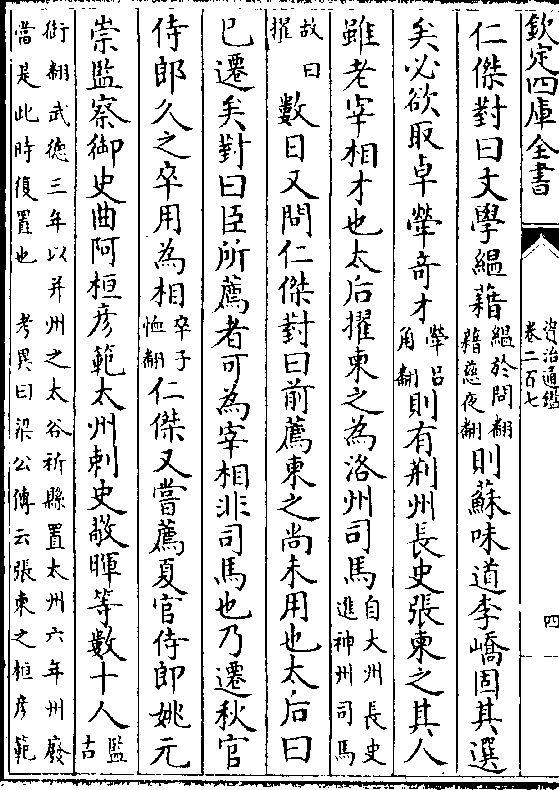 欽定四庫全書
資治通鑑
卷二百七
四
仁傑對曰文學緼藉緼於問翻藉慈夜翻則蘇味道李嶠固其選
矣必欲取卓犖奇才犖吕角翻則有荆州長史張柬之其人
雖老宰相才也太后擢柬之為洛州司馬自大州長史進神州司馬
故曰擢數日又問仁傑對曰前薦柬之尚未用也太后曰
已遷矣對曰臣所薦者可為宰相非司馬也乃遷秋官
侍郎久之卒用為相卒子恤翻仁傑又嘗薦夏官侍郎姚元
崇監察御史曲阿桓彦範太州刺史敬暉等數十人監古
銜翻武德三年以并州之太谷祈縣置太州六年州廢
當是此時復置也 考異曰梁公傳云張柬之桓彦範